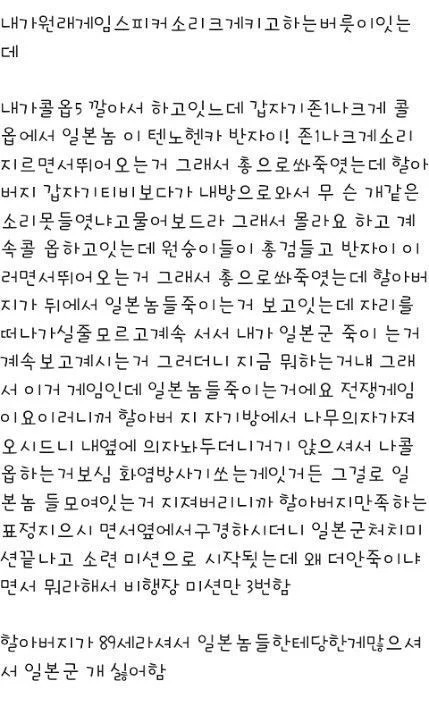 내가원래게임스피커소리크게키고하는버릇이잇는
데
내가콜옵5 깔아서 하고잇느데 갑자기존1나크게 콜
옵에서 일본놈 이 텐노헨카 반자이! 존1나크게소리
지르면서뛰어오는거 그래서 총으로쏴죽엿는데 할아
버지 갑자기티비보다가 내방으로와서 무 슨 개같은
소리못들엿냐고물어보드라 그래서 몰라요 하고 계
속콜 옵하고잇는데 원숭이들이 총검들고 반자이 이
러면서뛰어오는거 그래서 총으로쏴죽엿는데 할아버
지가 뒤에서 일본놈들죽이는거 보고잇는데 자리를
떠나가실줄모르고계속 서서 내가 일본군 죽이 는거
계속보고계시는거 그러더니 지금 뭐하는거냬 그래
서 이거 게임인데 일본놈들죽이는거에요 전쟁게임
이요이러니꺼 할아버 지 자기방에서 나무의자가져
오시드니 내옆에 의자놔두더니거기 앉으셔서 나콜
옵하는거보심 화염방사기쏘는게잇거든 그걸로 일
본놈 들모여잇는거 지져버리니까 할아버지만족하는
표정지으시 면서옆에서구경하시더니 일본군처치미
션끝나고 소련 미션으로 시작됫는데 왜 더안죽이냐
면서 뭐라해서 비행장 미션만 3번함
할아버지가 89세라셔서 일본놈들한테당한게많으셔
서 일본군 개 싫어함